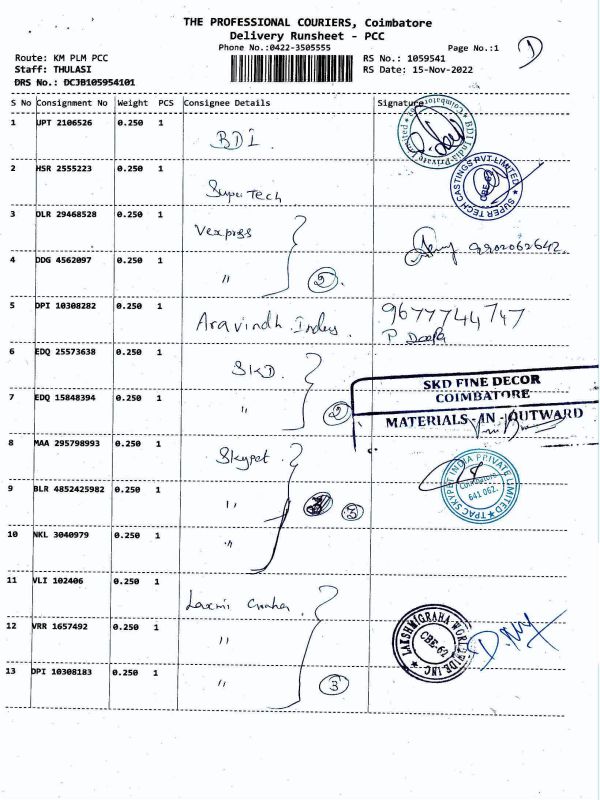 THE PROFESSIONAL COURIERS, Coimbatore
Delivery Runsheet - PCC
Phone No.:0422-3505555
Page No.:1
1
Route: KM PLM PCC
Staff: THULASI
DRS No.: DCJB105954101
RS No.: 1059541
RS Date: 15-Nov-2022
S No Consignment No Weight PCS Consignee Details Signature
1 UPT 2106526 0.250 1 BDI.
BDI India Private Limited ★ Coimbatore ★
2 HSR 2555223 0.250 1 SuperTech
SUPER TECH CASTINGS PVT. LIMITED ★ CBE-62
3 DLR 29468528 0.250 1 Vexpress
4 DDG 4562097 0.250 1 " 2
5 DPI 10308282 0.250 1 Aravindh Indus.
9677744747
P Deepa
6 EDQ 25573638 0.250 1 SKD.
7 EDQ 15848394 0.250 1 " 2
SKD FINE DECOR
COIMBATORE
MATERIALS-IN-OUTWARD
8 MAA 295798993 0.250 1 Skypet
9 BLR 4852425982 0.250 1 " 3
TPAC SKYPET INDIA PRIVATE LIMITED ★
Coimbatore
641 062.
10 NKL 3040979 0.250 1 "
11 VLI 102406 0.250 1 Laxmi Graha.
12 VRR 1657492 0.250 1 "
LAKSHMIGRAHA WORLDWIDE INC ★
CBE-62
13 DPI 10308183 0.250 1 " 3